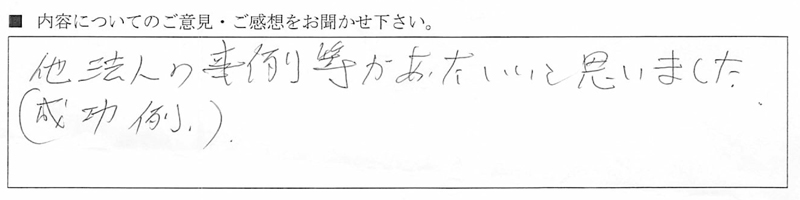 ■ 内容についてのご意見・ご感想をお聞かせ下さい。
他法人の事例等があればいいと思いました.
(成功例.).